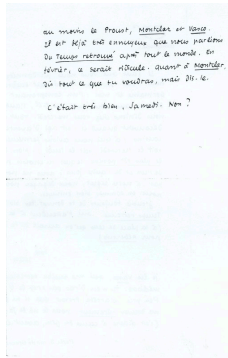 au moins le Proust, Montclar et Vasco
il est déjà très ennuyeux que nous parlions
du Temps retrouvé après tout le monde. En
février, ce serait ridicule. Quant à Montclar,
dis tout ce que tu voudras, mais dis-le.
C'était très bien, Samedi. Non ?